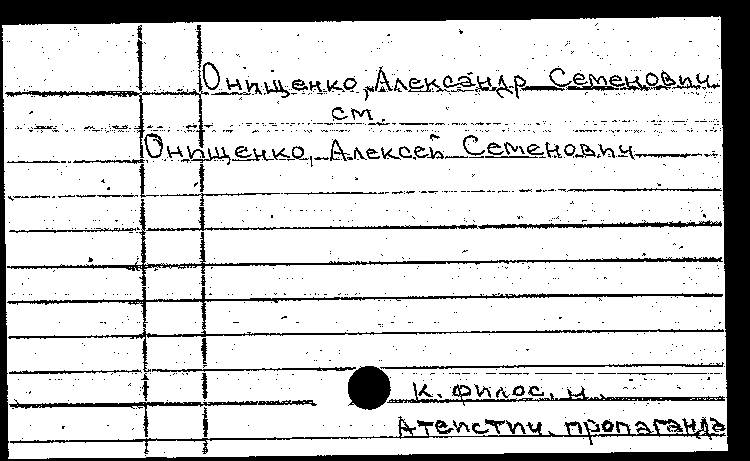 Онищенко, Александр Семенович
см.
Онищенко, Алексей Семенович
к. филос. н.
Атеистич. пропаганда